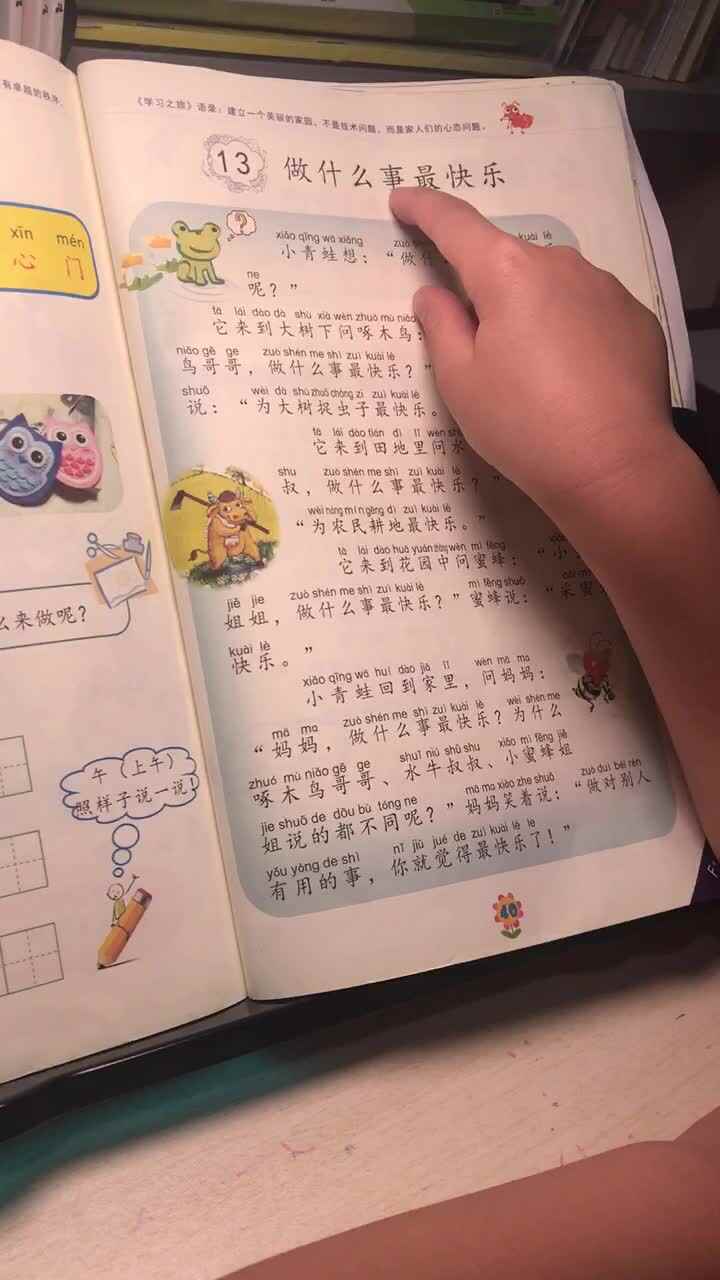 有卓越的秩序
xīn mén
心 门
么来做呢？
午（上午）
照样子说一说！
《学习之旅》语录：建立一个美丽的家园，不是技术问题，而是家人们的心态问题。
13 做什么事最快乐
xiǎo qīng wā xiǎng kuài lè
小青蛙想：“做什
ne
呢？”
tā lái dào dà shù xià wèn zhuó mù niǎo
它来到大树下问啄木鸟：
niǎo gē ge zuò shén me shì zuì kuài lè
鸟哥哥，做什么事最快乐？”
shuō wèi dà shù zhuō chóng zi zuì kuài lè
说：“为大树捉虫子最快乐。
tā lái dào tián dì lǐ wèn shuǐ
它来到田地里问水
shu zuò shén me shì zuì kuài lè
叔，做什么事最快乐？”
wèi nóng mín gēng dì zuì kuài lè
“为农民耕地最快乐。”
tā lái dào huā yuán zhōng wèn mì fēng
它来到花园中问蜜蜂：“小
jiě jie zuò shén me shì zuì kuài lè mì fēng shuō
姐姐，做什么事最快乐？”蜜蜂说：“采蜜
kuài lè
快乐。”
xiǎo qīng wā huí dào jiā lǐ wèn mā ma
小青蛙回到家里，问妈妈：
mā ma zuò shén me shì zuì kuài lè wèi shén me
“妈妈，做什么事最快乐？为什么
zhuó mù niǎo gē ge shuǐ niú shū shu xiǎo mì fēng jiě
啄木鸟哥哥、水牛叔叔、小蜜蜂姐
jie shuō de dōu bù tóng ne mā ma xiào zhe shuō zuò duì bié rén
姐说的都不同呢？”妈妈笑着说：“做对别人
yǒu yòng de shì nǐ jiù jué de zuì kuài lè le
有用的事，你就觉得最快乐了！”
40